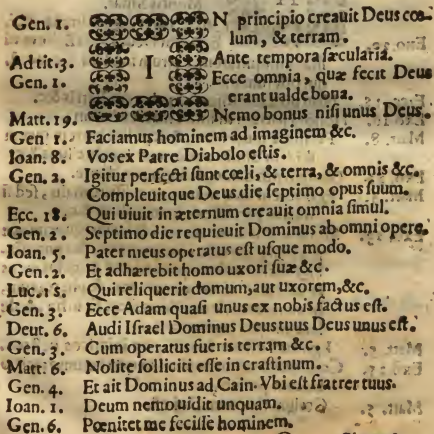 Gen. 1. IN principio creauit Deus cœ-
lum, & terram.
Ad tit. 3. Ante tempora sæcularia.
Gen. 1. Ecce omnia, quæ fecit Deus
erant ualde bona.
Matt. 19. Nemo bonus nisi unus Deus.
Gen 1. Faciamus hominem ad imaginem &c.
Ioan. 8. Vos ex Patre Diabolo estis.
Gen. 2. Igitur perfecti sunt cœli, & terra, & omnis &c.
Compleuitque Deus die septimo opus suum.
Ecc. 18. Qui uiuit in æternum creauit omnia simul.
Gen. 2. Septimo die requieuit Dominus ab omni opere.
Ioan. 5. Pater meus operatus est usque modo.
Gen. 2. Et adhærebit homo uxori suæ &c.
Luc. 18. Qui reliquerit domum, aut uxorem, &c.
Gen. 3. Ecce Adam quasi unus ex nobis factus est.
Deut. 6. Audi Israel Dominus Deus tuus Deus unus est.
Gen. 3. Cum operatus fueris terram &c.
Matt. 6. Nolite solliciti esse in crastinum.
Gen. 4. Et ait Dominus ad Cain. Vbi est fratrer tuus.
Ioan. 1. Deum nemo uidit unquam.
Gen. 6. Pœnitet me fecisse hominem.